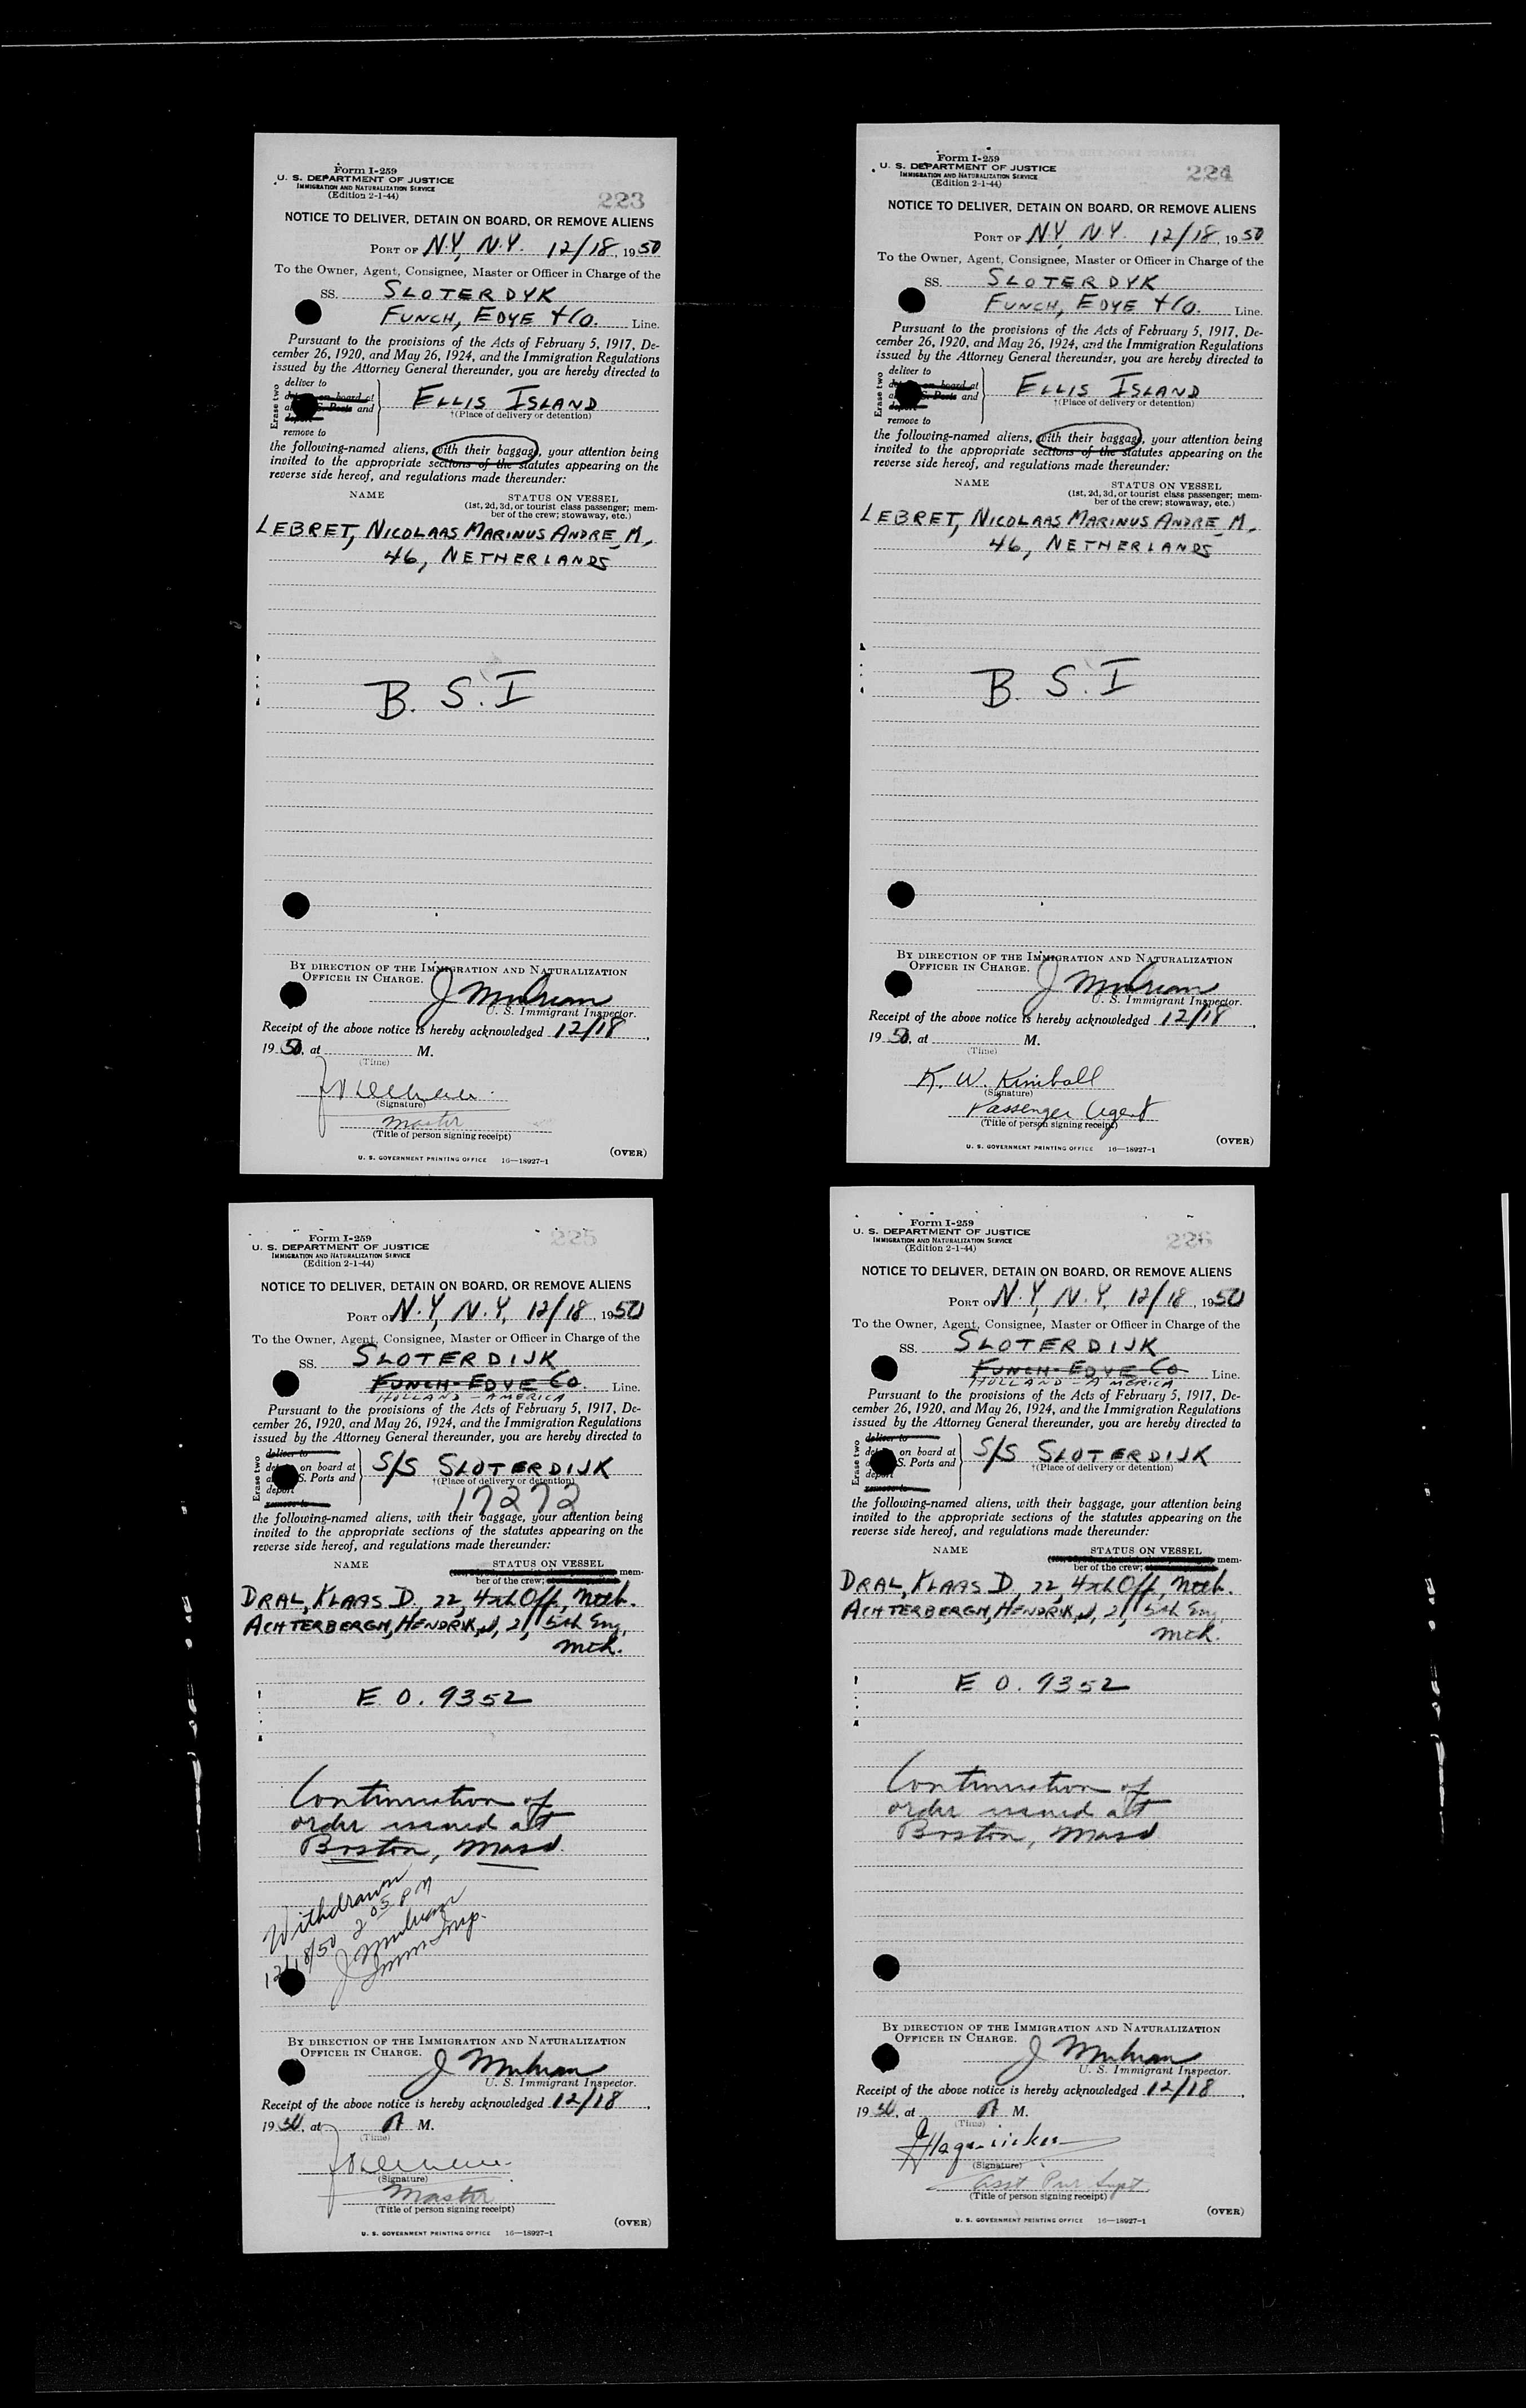 Form I-259
U. S. DEPARTMENT OF JUSTICE
IMMIGRATION AND NATURALIZATION SERVICE
(Edition 2-1-44)
223
NOTICE TO DELIVER, DETAIN ON BOARD, OR REMOVE ALIENS
PORT OF N.Y, N.Y. 12/18, 1950
To the Owner, Agent, Consignee, Master or Officer in Charge of the
SS. SLOTERDYK
FUNCH, EDYE + CO. Line.
Pursuant to the provisions of the Acts of February 5, 1917, De-
cember 26, 1920, and May 26, 1924, and the Immigration Regulations
issued by the Attorney General thereunder, you are hereby directed to
Erase two
deliver to
on board at
S. Ports and
deport
remove to
ELLIS ISLAND
†(Place of delivery or detention)
the following-named aliens, with their baggage, your attention being
invited to the appropriate sections of the statutes appearing on the
reverse side hereof, and regulations made thereunder:
NAME STATUS ON VESSEL
(1st, 2d, 3d, or tourist class passenger; mem-
ber of the crew; stowaway, etc.)
LEBRET, NICOLAAS MARINUS ANDRE, M,
46, NETHERLANDS
B. S. I
BY DIRECTION OF THE IMMIGRATION AND NATURALIZATION
OFFICER IN CHARGE.
U. S. Immigrant Inspector.
Receipt of the above notice is hereby acknowledged 12/18,
1950, at M.
(Time)
(Signature)
Master
(Title of person signing receipt)
(OVER)
U. S. GOVERNMENT PRINTING OFFICE 16—18927-1
Form I-259
U. S. DEPARTMENT OF JUSTICE
IMMIGRATION AND NATURALIZATION SERVICE
(Edition 2-1-44)
224
NOTICE TO DELIVER, DETAIN ON BOARD, OR REMOVE ALIENS
PORT OF N.Y, N.Y. 12/18, 1950
To the Owner, Agent, Consignee, Master or Officer in Charge of the
SS. SLOTERDYK
FUNCH, EDYE + CO. Line.
Pursuant to the provisions of the Acts of February 5, 1917, De-
cember 26, 1920, and May 26, 1924, and the Immigration Regulations
issued by the Attorney General thereunder, you are hereby directed to
Erase two
deliver to
on board at
S. Ports and
deport
remove to
ELLIS ISLAND
†(Place of delivery or detention)
the following-named aliens, with their baggage, your attention being
invited to the appropriate sections of the statutes appearing on the
reverse side hereof, and regulations made thereunder:
NAME STATUS ON VESSEL
(1st, 2d, 3d, or tourist class passenger; mem-
ber of the crew; stowaway, etc.)
LEBRET, NICOLAAS MARINUS ANDRE, M,
46, NETHERLANDS
B. S. I
BY DIRECTION OF THE IMMIGRATION AND NATURALIZATION
OFFICER IN CHARGE.
U. S. Immigrant Inspector.
Receipt of the above notice is hereby acknowledged 12/18,
1950, at M.
(Time)
K. W. Kimball
(Signature)
Passenger Agent
(Title of person signing receipt)
(OVER)
U. S. GOVERNMENT PRINTING OFFICE 16—18927-1
Form I-259
U. S. DEPARTMENT OF JUSTICE
IMMIGRATION AND NATURALIZATION SERVICE
(Edition 2-1-44)
225
NOTICE TO DELIVER, DETAIN ON BOARD, OR REMOVE ALIENS
PORT OF N.Y, N.Y, 12/18, 1950
To the Owner, Agent, Consignee, Master or Officer in Charge of the
SS. SLOTERDIJK
FUNCH-EDYE CO. Line.
HOLLAND-AMERICA
Pursuant to the provisions of the Acts of February 5, 1917, De-
cember 26, 1920, and May 26, 1924, and the Immigration Regulations
issued by the Attorney General thereunder, you are hereby directed to
Erase two
deliver to
on board at
S. Ports and
deport
remove to
S/S SLOTERDIJK
†(Place of delivery or detention)
17272
the following-named aliens, with their baggage, your attention being
invited to the appropriate sections of the statutes appearing on the
reverse side hereof, and regulations made thereunder:
NAME STATUS ON VESSEL
mem-
ber of the crew;
DRAL, KLAAS D., 22, 4th Off, Neth.
ACHTERBERGH, HENDRIK, J, 21, 5th Eng,
Neth.
E. O. 9352
Continuation of
order issued at
Boston, Mass.
Withdrawn
12/18/50 2 05 PM
BY DIRECTION OF THE IMMIGRATION AND NATURALIZATION
OFFICER IN CHARGE.
U. S. Immigrant Inspector.
Receipt of the above notice is hereby acknowledged 12/18,
1950, at M.
(Time)
(Signature)
Master
(Title of person signing receipt)
(OVER)
U. S. GOVERNMENT PRINTING OFFICE 16—18927-1
Form I-259
U. S. DEPARTMENT OF JUSTICE
IMMIGRATION AND NATURALIZATION SERVICE
(Edition 2-1-44)
226
NOTICE TO DELIVER, DETAIN ON BOARD, OR REMOVE ALIENS
PORT OF N.Y, N.Y. 12/18, 1950
To the Owner, Agent, Consignee, Master or Officer in Charge of the
SS. SLOTERDIJK
FUNCH-EDYE CO Line.
HOLLAND-AMERICA
Pursuant to the provisions of the Acts of February 5, 1917, De-
cember 26, 1920, and May 26, 1924, and the Immigration Regulations
issued by the Attorney General thereunder, you are hereby directed to
Erase two
deliver to
on board at
S. Ports and
deport
remove to
S/S SLOTERDIJK
†(Place of delivery or detention)
the following-named aliens, with their baggage, your attention being
invited to the appropriate sections of the statutes appearing on the
reverse side hereof, and regulations made thereunder:
NAME STATUS ON VESSEL
mem-
ber of the crew;
DRAL, KLAAS D., 22, 4th Off, Neth.
ACHTERBERGH, HENDRIK, J, 21, 5th Eng,
Neth.
E. O. 9352
Continuation of
order issued at
Boston, Mass
BY DIRECTION OF THE IMMIGRATION AND NATURALIZATION
OFFICER IN CHARGE.
U. S. Immigrant Inspector.
Receipt of the above notice is hereby acknowledged 12/18,
1950, at M.
(Time)
(Signature)
Asst
(Title of person signing receipt)
(OVER)
U. S. GOVERNMENT PRINTING OFFICE 16—18927-1